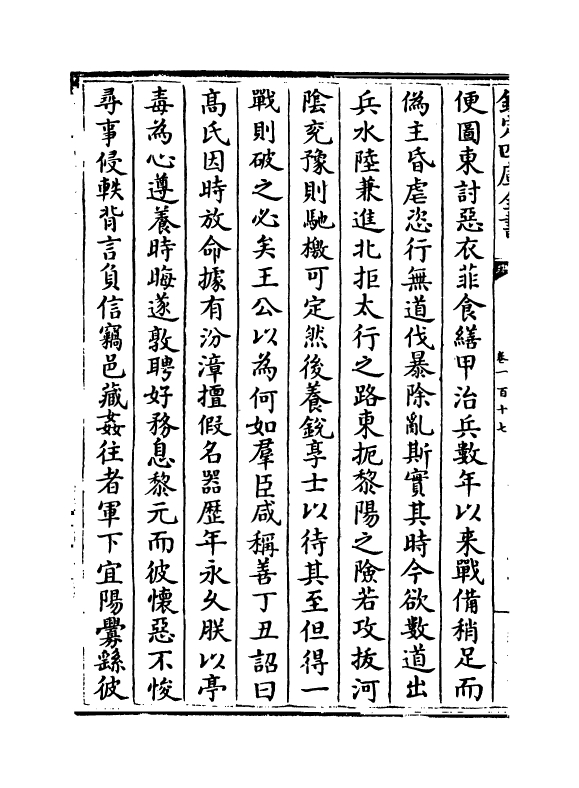 欽定四庫全書
卷一百十七
便圖東討惡衣菲食繕甲治兵數年以來戰備稍足而
偽主昏虐恣行無道伐暴除亂斯實其時今欲數道出
兵水陸兼進北拒太行之路東扼黎陽之險若攻拔河
陰兖豫則馳檄可定然後養銳享士以待其至但得一
戰則破之必矣王公以為何如羣臣咸稱善丁丑詔曰
高氏因時放命據有汾漳擅假名器歴年永乆朕以亭
毒為心遵養時晦遂敦聘好務息黎元而彼懷惡不悛
尋事侵軼背言負信竊邑藏姦往者軍下宜陽釁繇彼